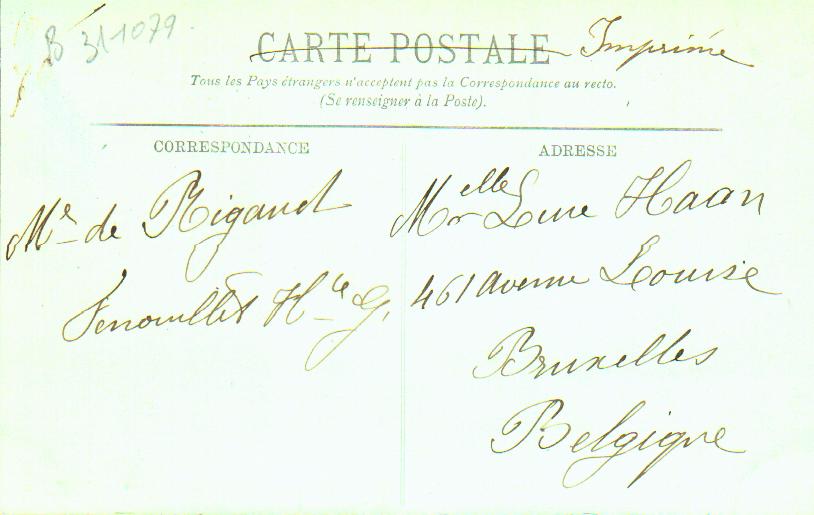 B 311079
CARTE POSTALE Imprimé
Tous les Pays étrangers n'acceptent pas la Correspondance au recto.
(Se renseigner à la Poste).
CORRESPONDANCE
Me de Rigaud
Fenouillet Hte G.
ADRESSE
Melle Haan
461 avenue Louise
Bruxelles
Belgique